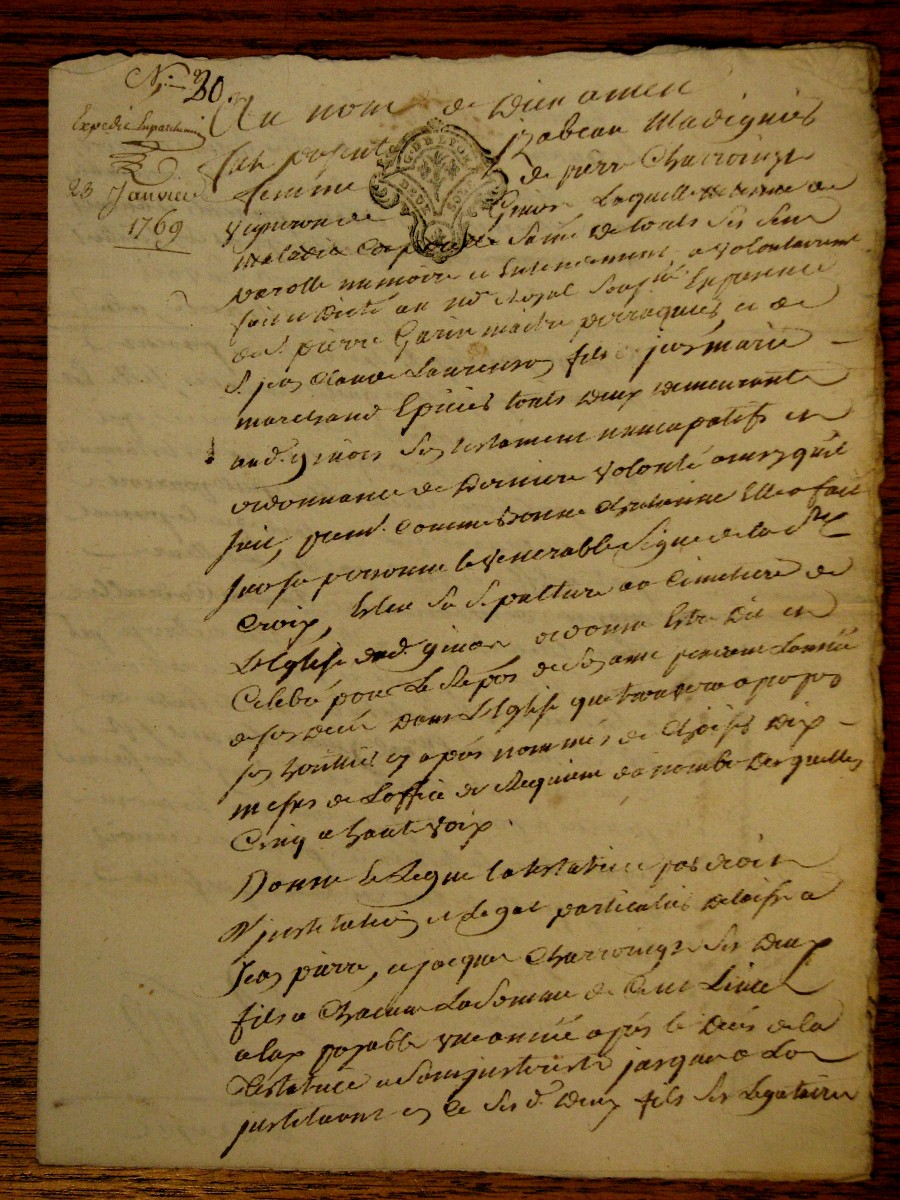 N.º 20.
Expedié en parchemin
23 Janvier
1769
Au nom de Dieu amen
fut presente Izabeau Madignier
femme de pierre Charroingt
vigneron de Givors Laquelle detenue de
maladie corporelle saine de touts ses sens
parolle memoire et Entendement, a volontairement
fait et dicté au nore Royal soussné En presence
de Sr pierre Garin maitre perruquier et de
Sr jean Claude Laurenson fils a jean marie
marchand Epicier touts deux demeurants
aud. givors son testament nuncupatif et
ordonnance de derniere volonté ainsy qu'il
suit, premt. Comme bonne chretienne Elle a fait
sur sa personne le venerable signe de la Ste
Croix, Eslu sa sepulture au Cimetiere de
L'Eglise dud. givors, ordonne Estre dit et
Celebré pour Le Repos de son ame pendant L'année
de son decés dans L'Eglise que trouvera a propos
ses heritiers cy aprés nommés de Choisir dix
messes de L'office de Requiem du nombre desquelles
Cinq a haute voix.
Donne et Legue la testatrice par droit
d'institution et Legat particulier delaisse a
Jean pierre, et jacques Charroingt ses deux
fils a Chacun La somme de Cent Livres
a eux payable une année aprés le decés de la
testatrice et sans interests jusques a Lors
instituant en ce ses d. deux fils ses Legataires
G. DE LYON